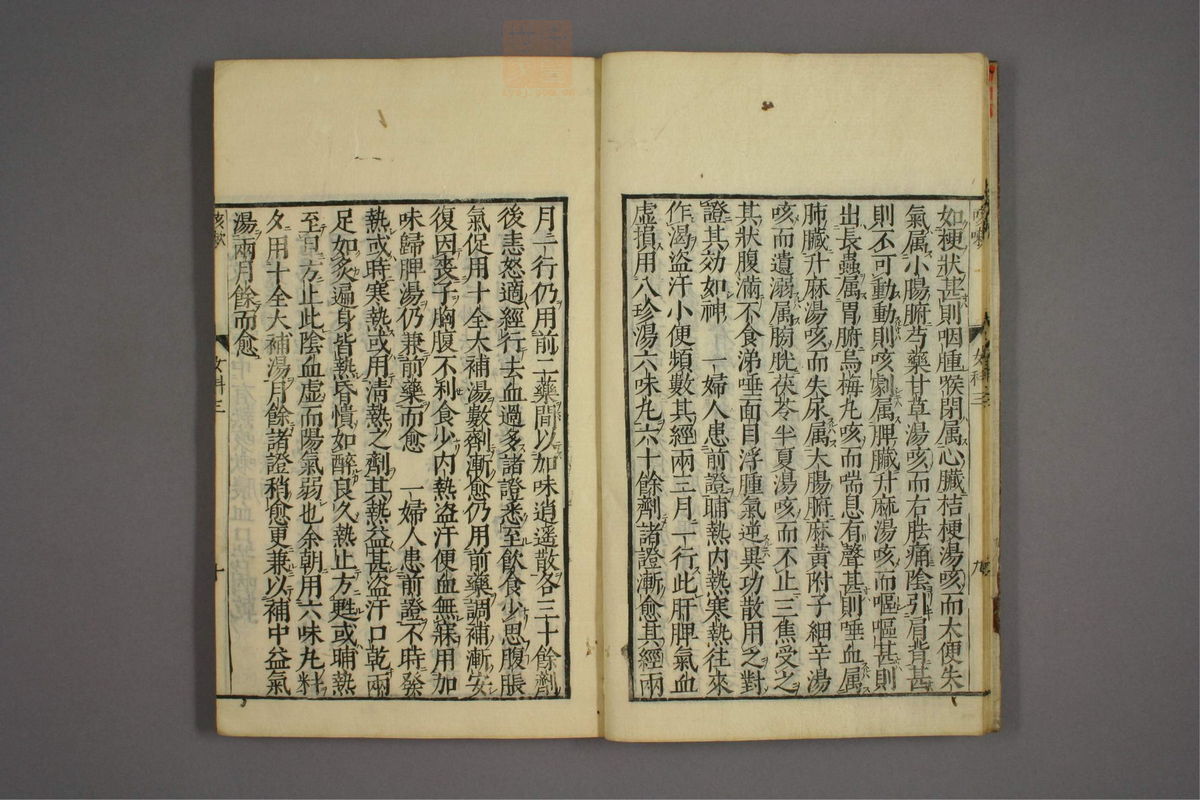 如梗狀甚則咽腫喉閉属心臓桔梗湯咳而大便失
氣属小腸腑芍藥甘草湯咳而右胠痛陰引肩背甚
則不可動動則咳劇属脾臓升麻湯咳而嘔嘔甚則
出長蟲属胃腑烏梅丸咳而喘息有聲甚則唾血属
肺臓升麻湯咳而失尿属大腸腑麻黄附子細辛湯
咳而遺溺属膀胱茯苓半夏湯咳而不止三焦受之
其狀腹滿不食涕唾面目浮腫氣逆異功散用之對
證其効如神　一婦人患前證晡熱内熱寒熱往來
作渴盗汗小便頻數其經兩三月一行此肝脾氣血
虚損用八珍湯六味丸六十餘劑諸證漸愈其經兩
女科三
九
月一行仍用前二藥間以加味逍遥散各三十餘劑
後恚怒適經行去血過多諸證悉至飲食少思腹脹
氣促用十全大補湯數劑漸愈仍用前藥調補漸安
復因喪子胸腹不利食少内熱盗汗便血無寐用加
味歸脾湯仍兼前藥而愈　一婦人患前證不時發
熱或時寒熱或用清熱之劑其熱益甚盗汗口乾兩
足如炙遍身皆熱昏憒如醉良久熱止方甦或晡熱
至旦方止此陰血虚而陽氣弱也余朝用六味丸料
夕用十全大補湯月餘諸證稍愈更兼以補中益氣
湯兩月餘而愈
咳嗽
女科三
十